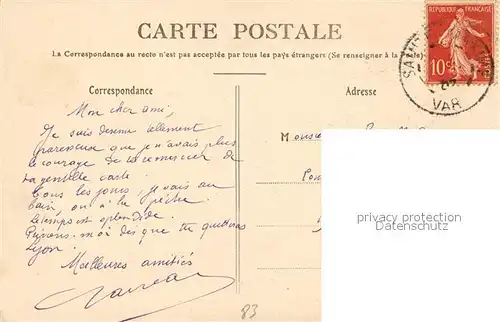 CARTE POSTALE
La Correspondance au recto n'est pas acceptée par tous les pays étrangers (Se renseigner à la
REPUBLIQUE FRANÇAISE
10c
VAR
Correspondance
Adresse
Mon cher ami,
Je suis devenu tellement
paresseux que je n'avais plus
le courage de te remercier de
ta gentille carte.
Tous les jours, je vais au
bain, ou à la pêche.
Le temps est splendide.
moi dès que tu quitteras
Lyon.
Meilleures amitiés
Monsieu
privacy protection
Datenschutz
83